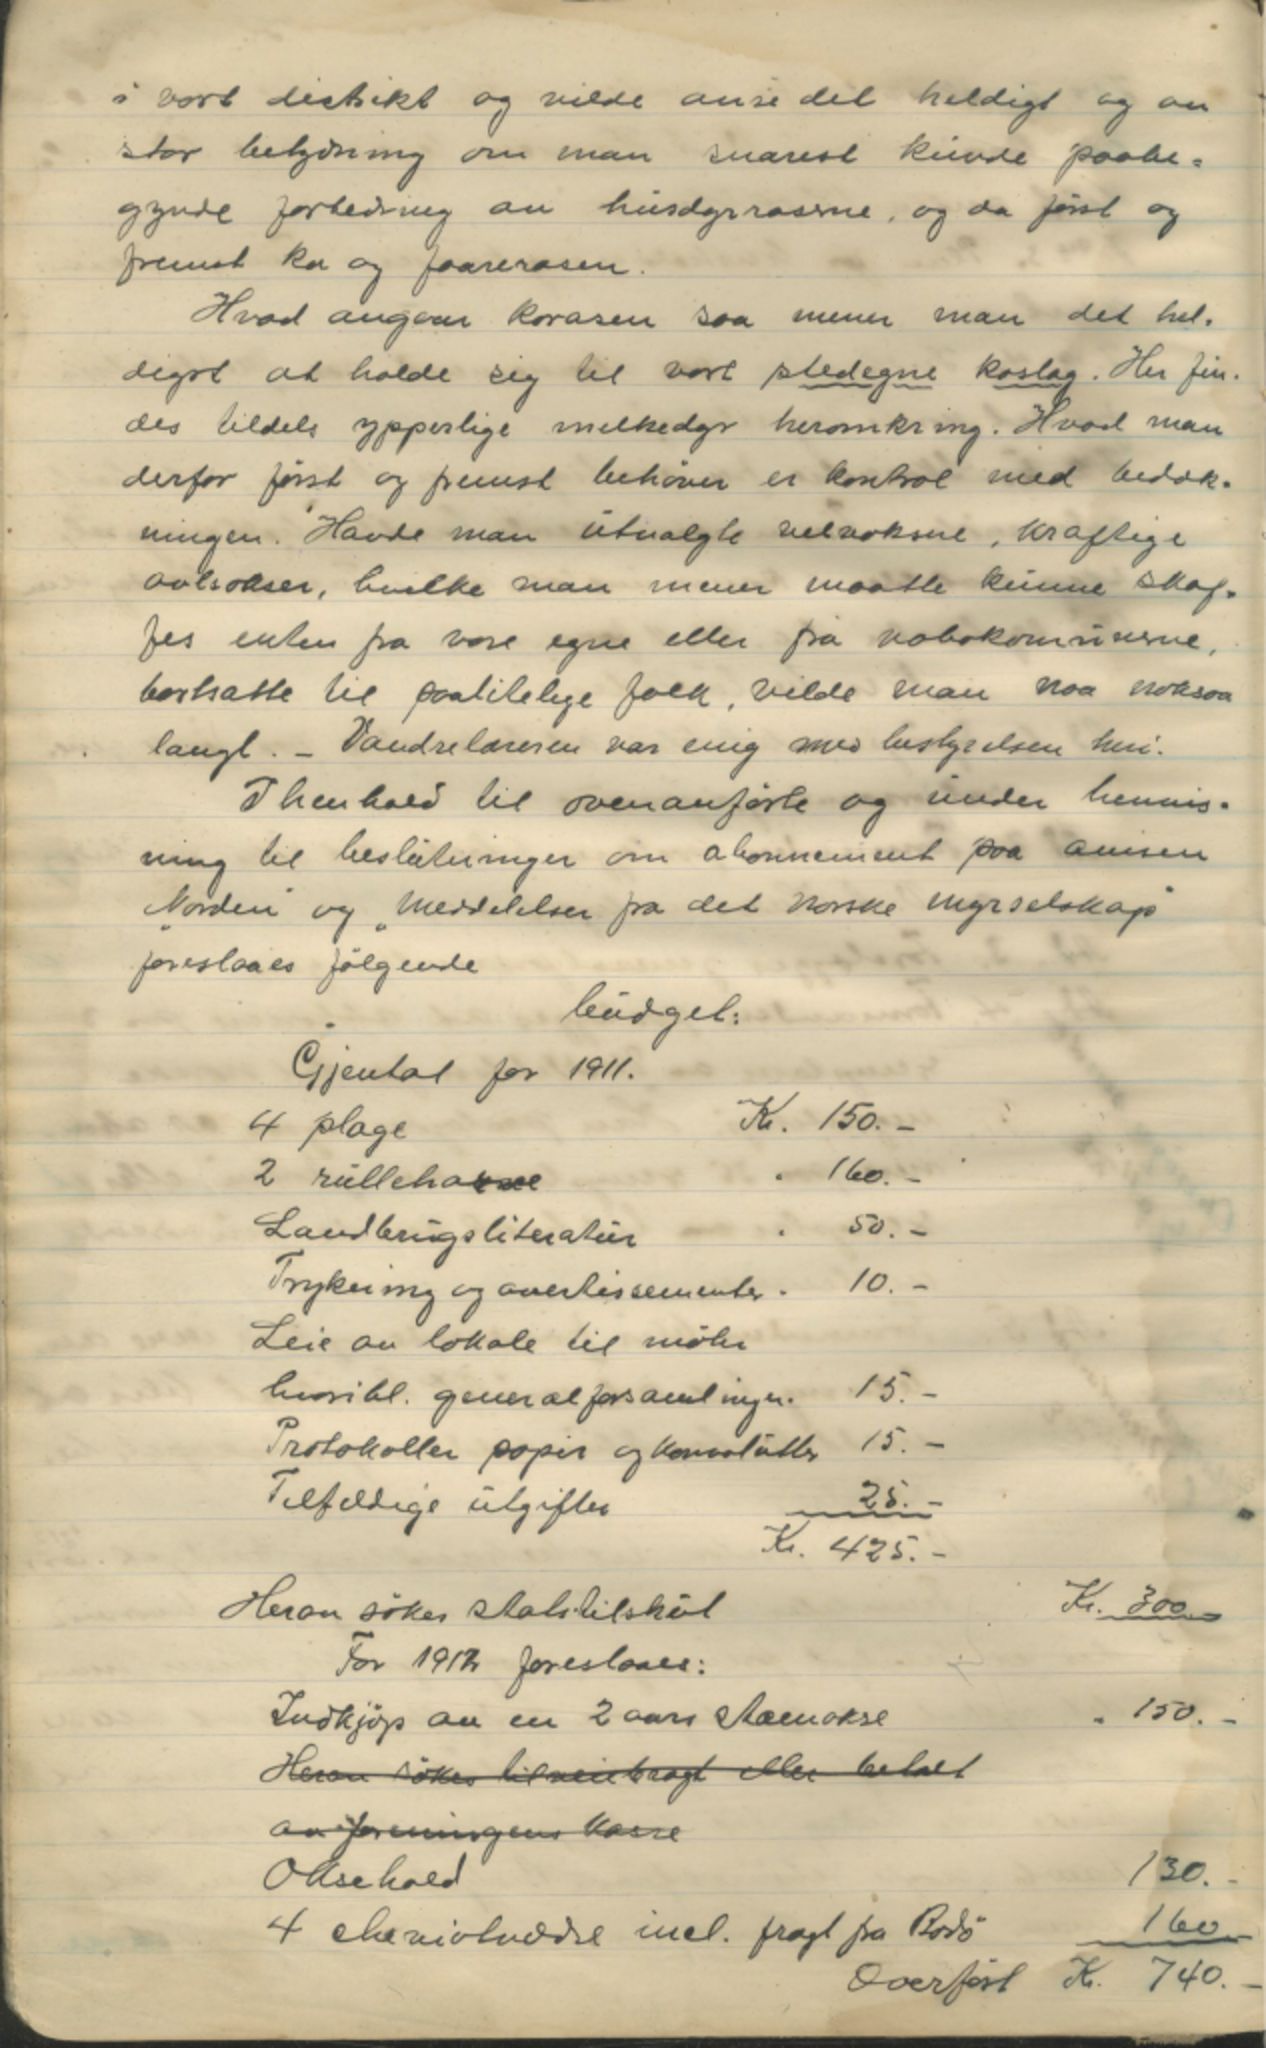 i vort distrikt og vilde anse det heldigt og av
stor betydning om man snarest kunde paabe-
gynde forbedring av husdyrraserne, og da først og
fremst ku og faarerasen.
Hvad angaar korasen saa mener man det hel-
digst at holde sig til vort stedegne koslag. Her fin-
des tildels ypperlige melkedyr heromkring. Hvad man
derfor først og fremst behøver er kontrol med bedæk-
ningen. Havde man utvalgte velvoksne, kraftige
avlsokser, hvilke man mener maatte kunne skaf-
fes enten fra vore egne eller fra nabokomunerne,
bortsatte til paalitelige folk, vilde man naa noksaa
langt. – Vandrelæreren var enig med bestyrelsen heri.
I henhold til ovenanførte og under henvis-
ning til beslutninger om abonnement paa avisen
„Norden" og „Meddelelser fra det norske myrselskap"
foreslaaes følgende
budget:
Gjental for 1911.
4 plage Kr. 150.-
2 rulleharve " 160.-
Landbrugsliteratur " 50.-
Trykning og avertissementer " 10.-
Leie av lokale til møter
hvoribl. generalforsamlinger. 15.-
Protokoller papir og konvolutter 15.-
Tilfældige utgifter 25.-
Kr. 425.-
Herav søkes statstilskut Kr. 300.-
For 1912 foreslaaes:
Indkjøp av en 2 aars stamokse " 150.-
Herav søkes tilveiebragt eller betalt
av foreningens kasse
Oksehold 130.-
4 cheviotvædre incl. fragt fra Bodø 160.-
Overført Kr. 740.-